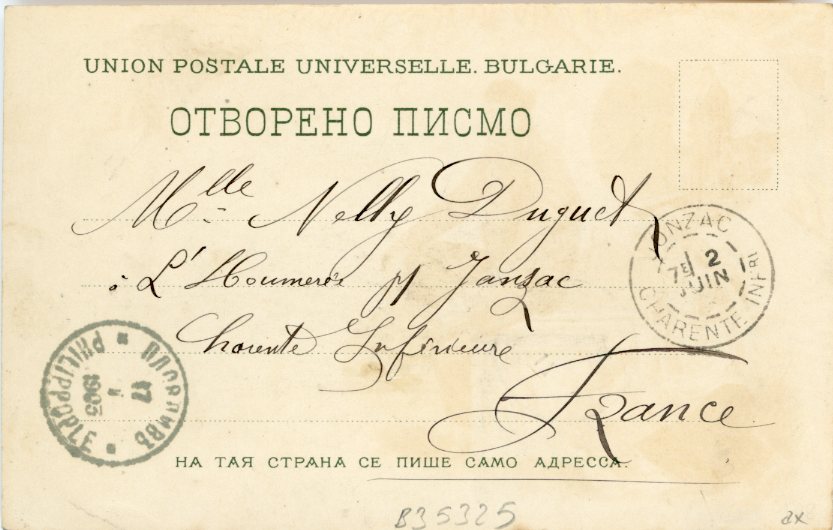 UNION POSTALE UNIVERSELLE. BULGARIE.
ОТВОРЕНО ПИСМО
Mlle Nelly Duguet
à L'Houmerée pr Jonzac
Charente Inférieure
France
JONZAC
7E 2
JUIN
CHARENTE INFRE
ПЛОВДИВЪ
17
1903
PHILIPPOPLE
НА ТАЯ СТРАНА СЕ ПИШЕ САМО АДРЕССА.
B35325